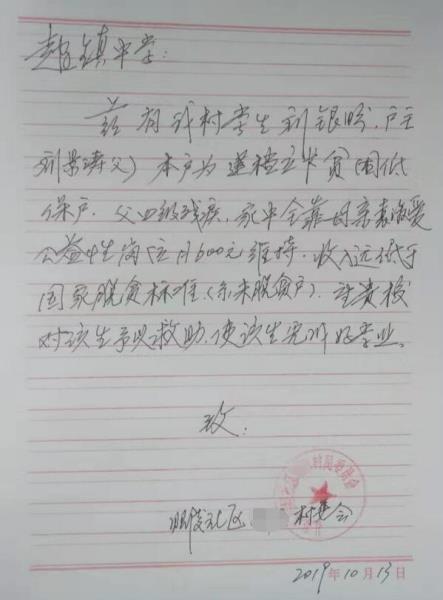 赵镇中学:
兹有我村学生刘银盼,户主
刘景涛(父)本户为建档立卡贫困低
保户.父四级残疾,家中全靠母亲
公益性岗位月600元维持.收入远低于
国家脱贫标准(亦未脱贫户).望贵校
对该生予以救助.使该生完成好学业。
致.
社区 村委会
村民委员会
2019年10月13日